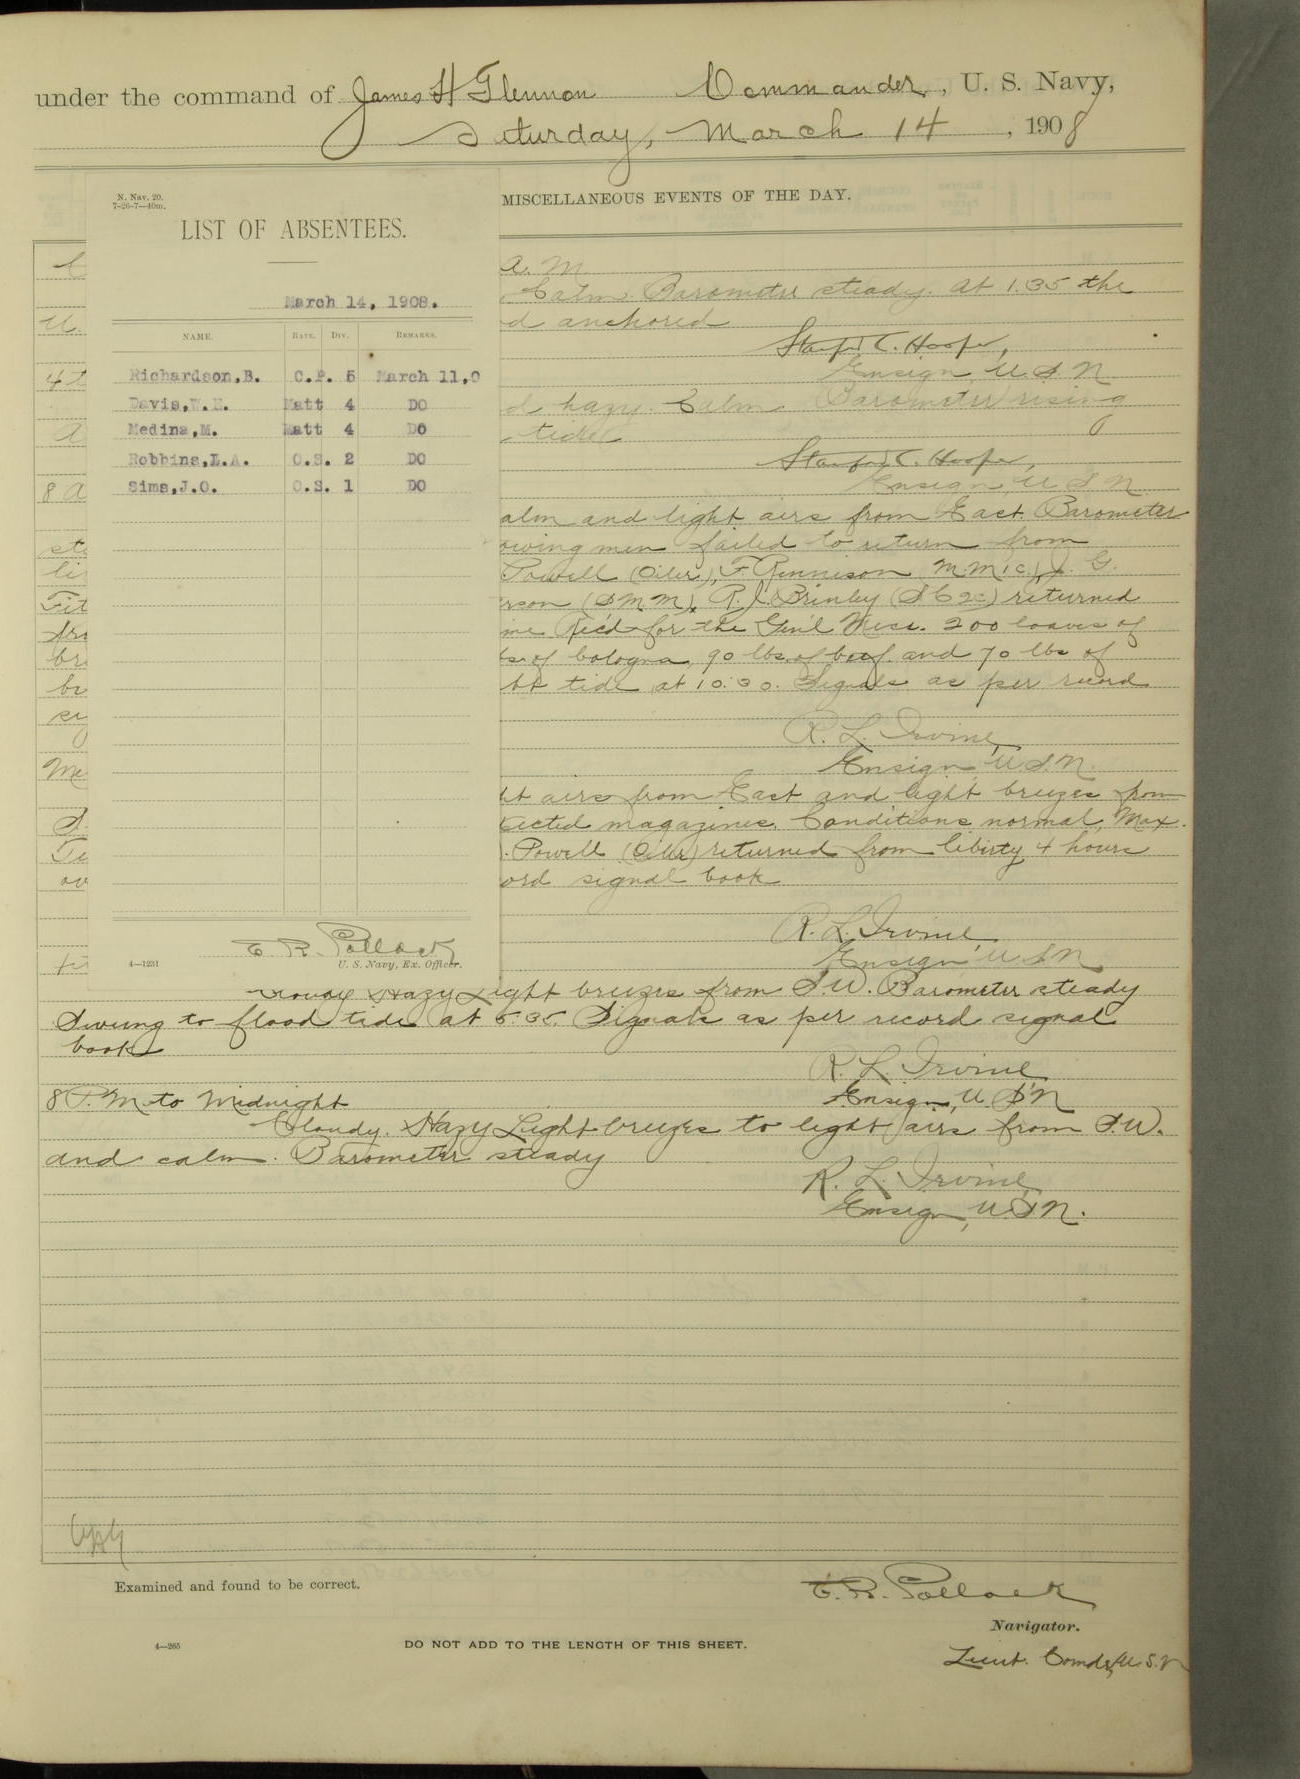 under the command of James H Glennon Commander, U. S. Navy,
Saturday, March 14, 1908
N. Nav. 20.
7-26-7-40m.
LIST OF ABSENTEES.
March 14, 1908.
NAME. RATE. DIV. REMARKS.
Richardson,B. C.P. 5 March 11,0
Davis,W.E. Matt 4 DO
Medina,M. Matt 4 DO
Robbins,L.A. O.S. 2 DO
Sims,J.O. O.S. 1 DO
E. R. Pollock
4—1231 U. S. Navy, Ex. Officer.
MISCELLANEOUS EVENTS OF THE DAY.
A. M
Calm. Barometer steady. At 1.35 the
d anchored
Stanford C. Hooper,
Ensign, U S N
d hazy. Calm. Barometer rising
tide
Stanford C. Hooper,
Ensign, U S N
8 A
alm and light airs from East. Barometer
owing men failed to return from
Powell (Oiler), F Rennison (M M 1 c.), J. G.
rson (S M M), R. J. Brinley (S C 2c) returned
me Rec'd for the Gen'l Mess. 200 loaves of
bs. of bologna, 90 lbs. of beef. and 70 lbs of
bb tide at 10.30. Signals as per record
R. L. Irvine,
Ensign U.S.N.
ht airs from East and light breezes from
ected magazines. Conditions normal, Max.
. Powell (Oiler) returned from liberty 4 hours
ord signal book
R. L. Irvine
Ensign U S N
Cloudy Hazy Light breezes from S.W. Barometer steady
Swung to flood tide at 5.35. Signals as per record signal
book
R. L. Irvine
8 P.M. to Midnight Ensign, U S N
Cloudy. Hazy Light breezes to light airs from S.W.
and calm. Barometer steady
R. L. Irvine
Ensign, U.S.N.
Examined and found to be correct.
E. R. Pollock
Navigator.
4—265 DO NOT ADD TO THE LENGTH OF THIS SHEET.
Lieut. Comdr, U.S.N